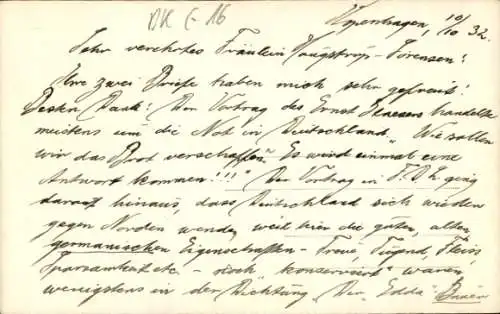 DK C-16
Kopenhagen, 10/10 32.
Sehr verehrtes Fräulein Haugstrup-Sörensen!
Ihre zwei Briefe haben mich sehr gefreut!
Besten Dank! Der Vortrag des Ernst handelte
meistens um die Not in Deutschland „Wie sollen
wir das Brot verschaffen" Es wird einmal eine
Antwort kommen!!!" Der Vortrag in ging
darauf hinaus, dass Deutschland sich wieder
gegen Norden wende, weil hier die guten, alten
germanischen Eigenschaften – Treue, Tugend, Fleiss
Sparsamkeit etc – noch „konserviert" waren
wenigstens in der Dichtung „Der Edda".